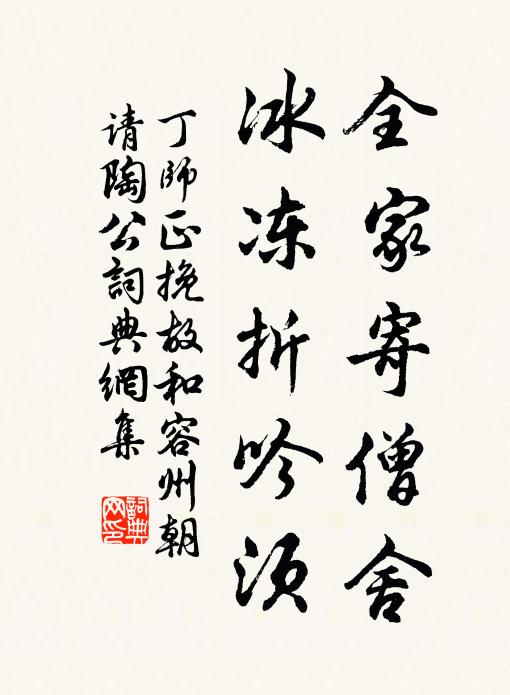 全家寄僧舍
冰冻折吟须
丁师正挽故和容州朝
请陶公詞典網集
詞典
网印